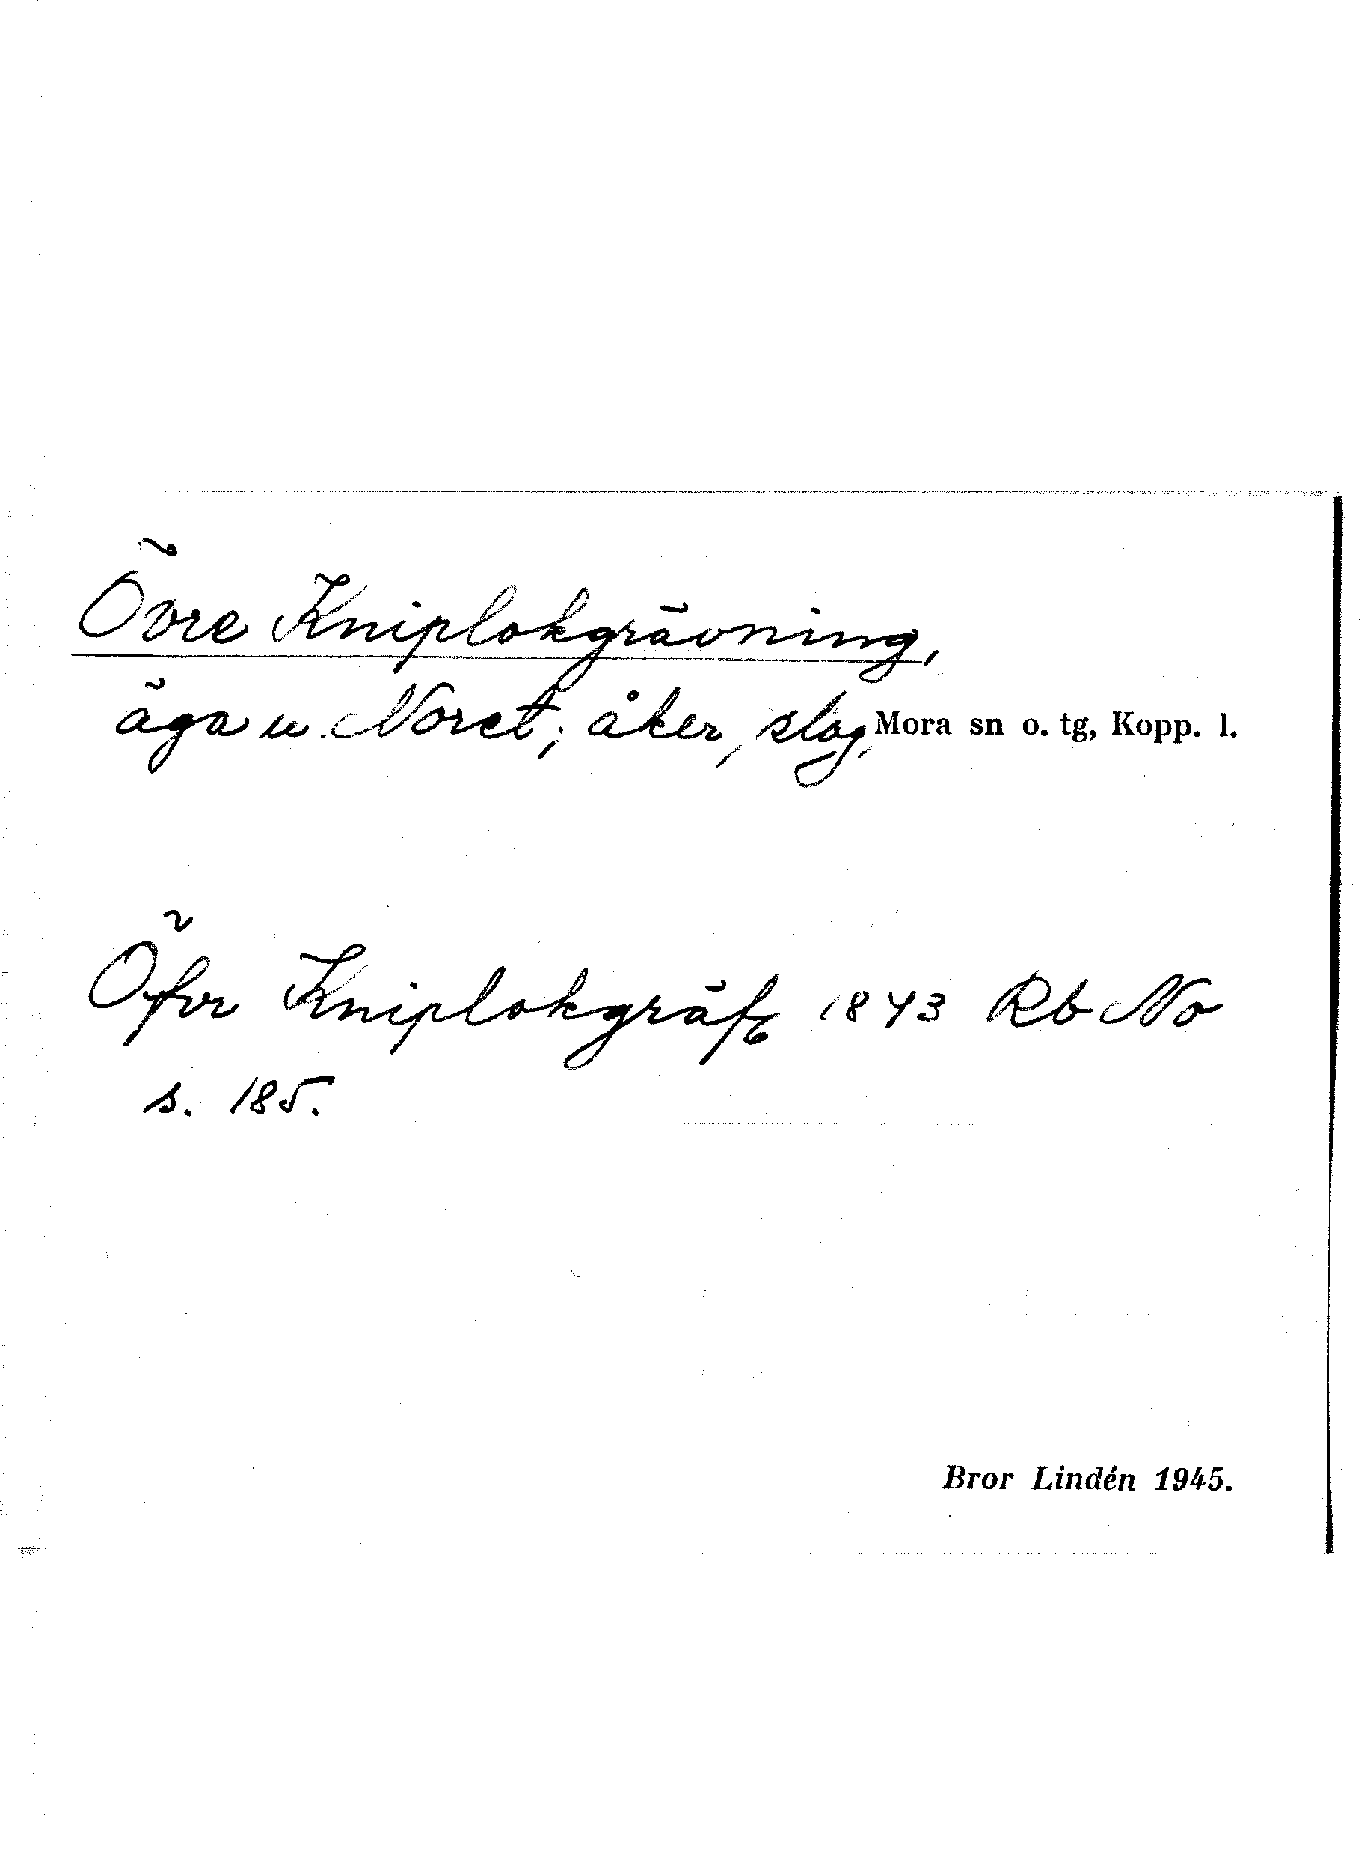 Övre Kniplokgrävning,
äga u. Noret; åker, slog, Mora sn o. tg, Kopp. l.
Öfvr Kniplokgräfn 1843 Rb No
s. 185.
Bror Lindén 1945.